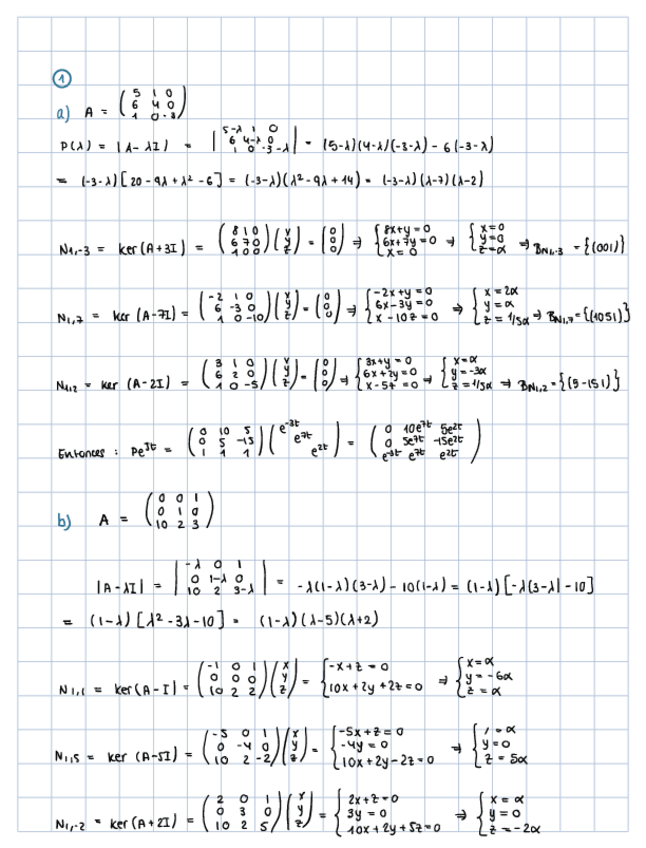 ①
a) A = ( 5 1 0 ; 6 4 0 ; 1 0 -3 )
P(λ) = |A - λI| = | 5-λ 1 0 ; 6 4-λ 0 ; 1 0 -3-λ | = (5-λ)(4-λ)(-3-λ) - 6(-3-λ)
= (-3-λ)[20 - 9λ + λ² - 6] = (-3-λ)(λ² - 9λ + 14) = (-3-λ)(λ-7)(λ-2)
N₁,₋₃ = ker(A+3I) = ( 8 1 0 ; 6 7 0 ; 1 0 0 )( x ; y ; z ) = ( 0 ; 0 ; 0 ) ⇒ { 8x+y=0 ; 6x+7y=0 ; x=0 ⇒ { x=0 ; y=0 ; z=α ⇒ B_N₁,₋₃ = {(001)}
N₁,₇ = ker(A-7I) = ( -2 1 0 ; 6 -3 0 ; 1 0 -10 )( x ; y ; z ) = ( 0 ; 0 ; 0 ) ⇒ { -2x+y=0 ; 6x-3y=0 ; x-10z=0 ⇒ { x=2α ; y=α ; z=1/5α ⇒ B_N₁,₇ = {(1051)}
N₁,₂ = ker(A-2I) = ( 3 1 0 ; 6 2 0 ; 1 0 -5 )( x ; y ; z ) = ( 0 ; 0 ; 0 ) ⇒ { 3x+y=0 ; 6x+2y=0 ; x-5z=0 ⇒ { x=α ; y=-3α ; z=1/5α ⇒ B_N₁,₂ = {(5-151)}
Entonces : Pe^Jt = ( 0 10 5 ; 0 5 -15 ; 1 1 1 )( e^-3t ; e^7t ; e^2t ) = ( 0 10e^7t 5e^2t ; 0 5e^7t -15e^2t ; e^-3t e^7t e^2t )
b) A = ( 0 0 1 ; 0 1 0 ; 10 2 3 )
|A-λI| = | -λ 0 1 ; 0 1-λ 0 ; 10 2 3-λ | = -λ(1-λ)(3-λ) - 10(1-λ) = (1-λ)[-λ(3-λ) - 10]
= (1-λ)[λ² - 3λ - 10] = (1-λ)(λ-5)(λ+2)
N₁,₁ = ker(A-I) = ( -1 0 1 ; 0 0 0 ; 10 2 2 )( x ; y ; z ) = { -x+z=0 ; 10x+2y+2z=0 ⇒ { x=α ; y=-6α ; z=α
N₁,₅ = ker(A-5I) = ( -5 0 1 ; 0 -4 0 ; 10 2 -2 )( x ; y ; z ) = { -5x+z=0 ; -4y=0 ; 10x+2y-2z=0 ⇒ { =α ; y=0 ; z=5α
N₁,₋₂ = ker(A+2I) = ( 2 0 1 ; 0 3 0 ; 10 2 5 )( x ; y ; z ) = { 2x+z=0 ; 3y=0 ; 10x+2y+5z=0 ⇒ { x=α ; y=0 ; z=-2α